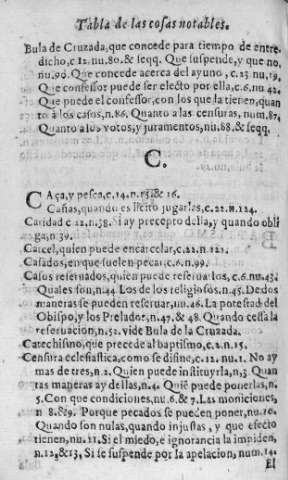 Tabla de las cosas notables.
Bula de Cruzada, que concede para tiempo de entre-
dicho, c 12. nu. 80. & seqq. Que suspende, y que no,
nu. 90. Que concede acerca del ayuno, c. 23. nu, 19,
Que confessor puede ser electo por ella, c. 6. nu 42.
Que puede el confessor, con los que la tienen, quan
to à los casos, n. 86. Quanto a las censuras, num. 87,
Quanto a los votos, y juramentos, nu. 88. & seqq.
C.
CAça, y pesca, c. 14. n. 15. & 16.
Cañas, quando es licito jugarles, c. 22. n. 124.
Caridad c 22, n. 38. Si ay precepto della, y quando obli
ga, n. 39.
Carcel, quien puede encarcelar, c. 22. n. 121.
Casados, en que suelen pecar, c. 6. n. 99.
Casos reseruados, quien puede reseruarlos, c. 6. nu. 43.
Quales son, n. 44. Los de los religiosos, n. 45. De dos
maneras se pueden reseruar, nu. 46. La potestad del
Obispo, y los Prelados, n. 47. & 48. Quando cessa la
reseruacion, n. 52. vide Bula de la Cruzada.
Catechismo, que precede al baptismo, c. 2. n. 15.
Censura eclesiastica, como se difine, c. 12. nu. 1. No ay
mas de tres, n. 2. Quien puede instituyrla, n 3. Quan
tas maneras ay dellas, n. 4. Quiē puede ponerlas, n.
5. Con que condiciones, nu. 6. & 7. Las moniciones,
n 8. & 9. Porque pecados se pueden poner, nu. 10.
Quando son nulas, quando injustas, y que efecto
tienen, nu. 11. Si el miedo, e ignorancia la impiden,
n. 12, & 13, Si se suspende por la apelacion, num. 14.
El